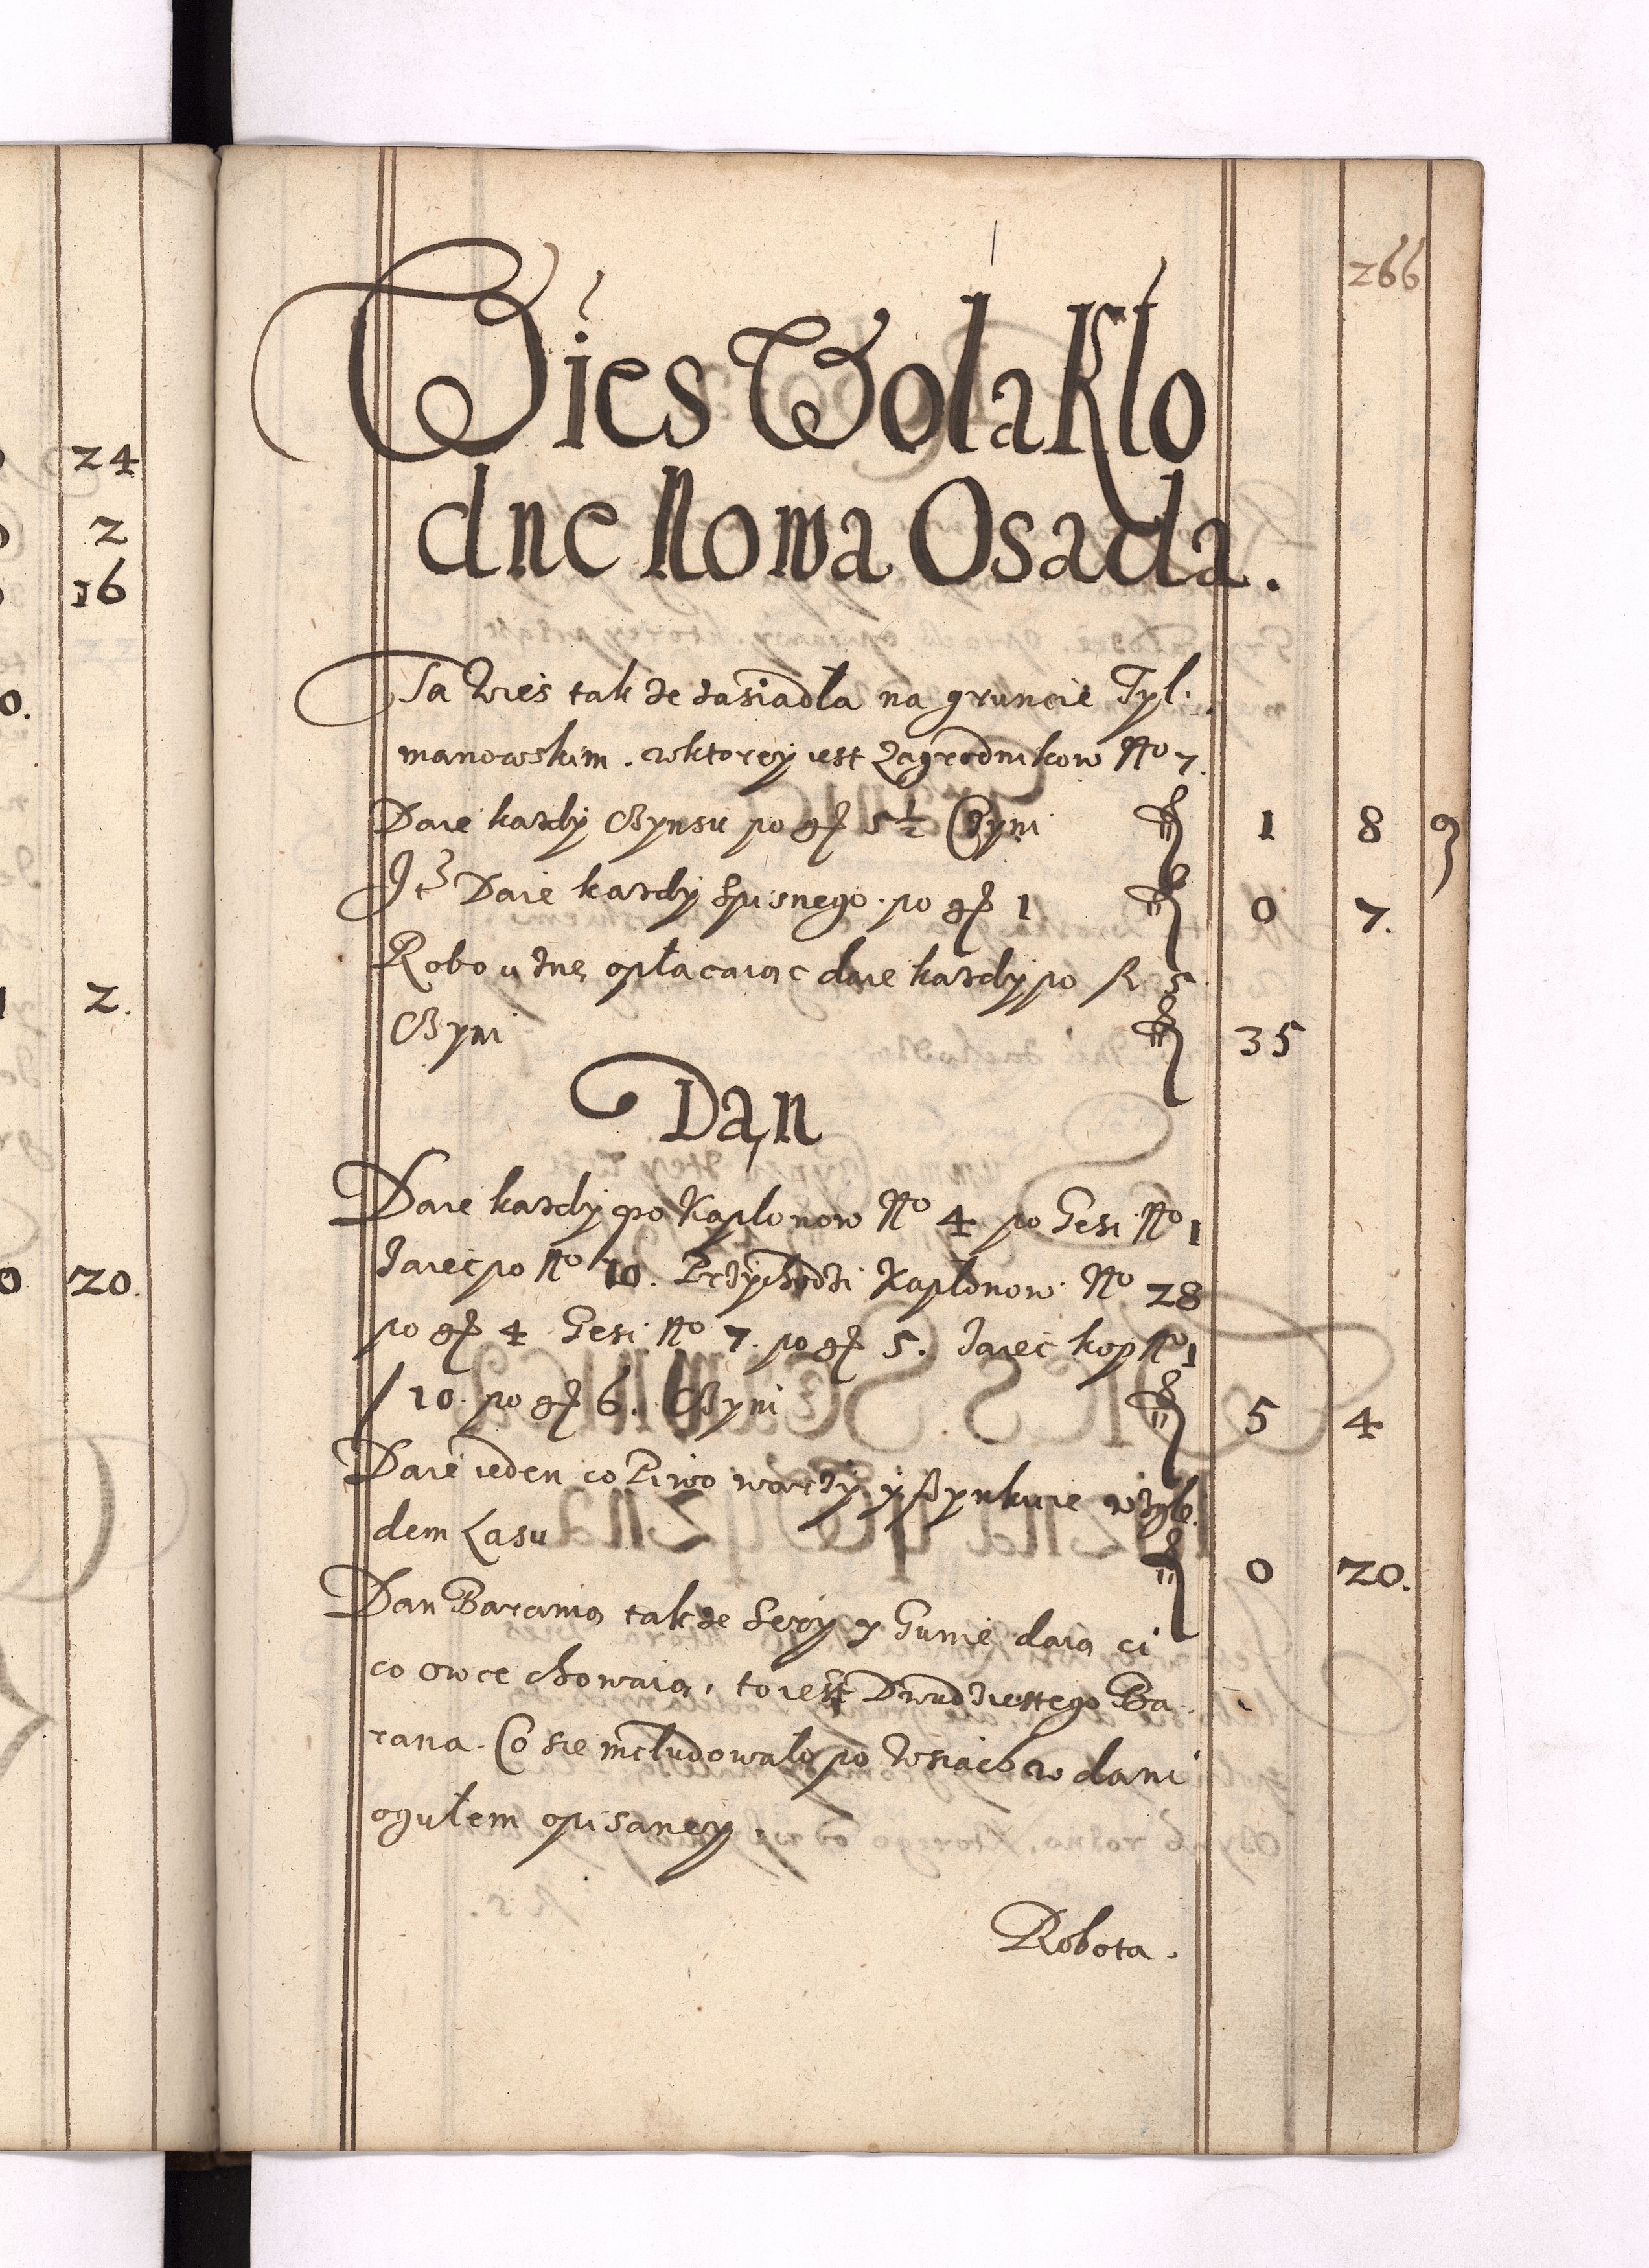 24
2
16
0.
2.
0 20.
266
Wies Wola Kło
dne Nowa Osada.
Ta Wieś takze zasiadła na gruncie Tyl.
manowskim. wktorey iest Zagrodnikow No 7.
Daie kazdy Czynsu po gr 5½ Czyni 1 8 9
Daie kazdy Spisnego po gr 1 0 7.
opłacaiąc daie kazdy po fl 5.
Czyni 35
Dan
Daie kazdy po Kapłonow No 4 po Gęsi No 1
Jaiec po No 10. Przychodzi Kapłonow No 28
po gr 4 Gęsi No 7. po gr 5. Jaiec kop No 1
/10. po gr 6. Czyni 5 4
Daie ieden co Piwo warzy y szynkuie wzglę.
dem Lasu 0 20.
Dan Barania takze Sery y Gunie daią ci
co owce chowaią, to iest Dwudziestego Ba.
rana. Co sie includowało po Wsiach w dani
ogułem opisaney.
Robota.